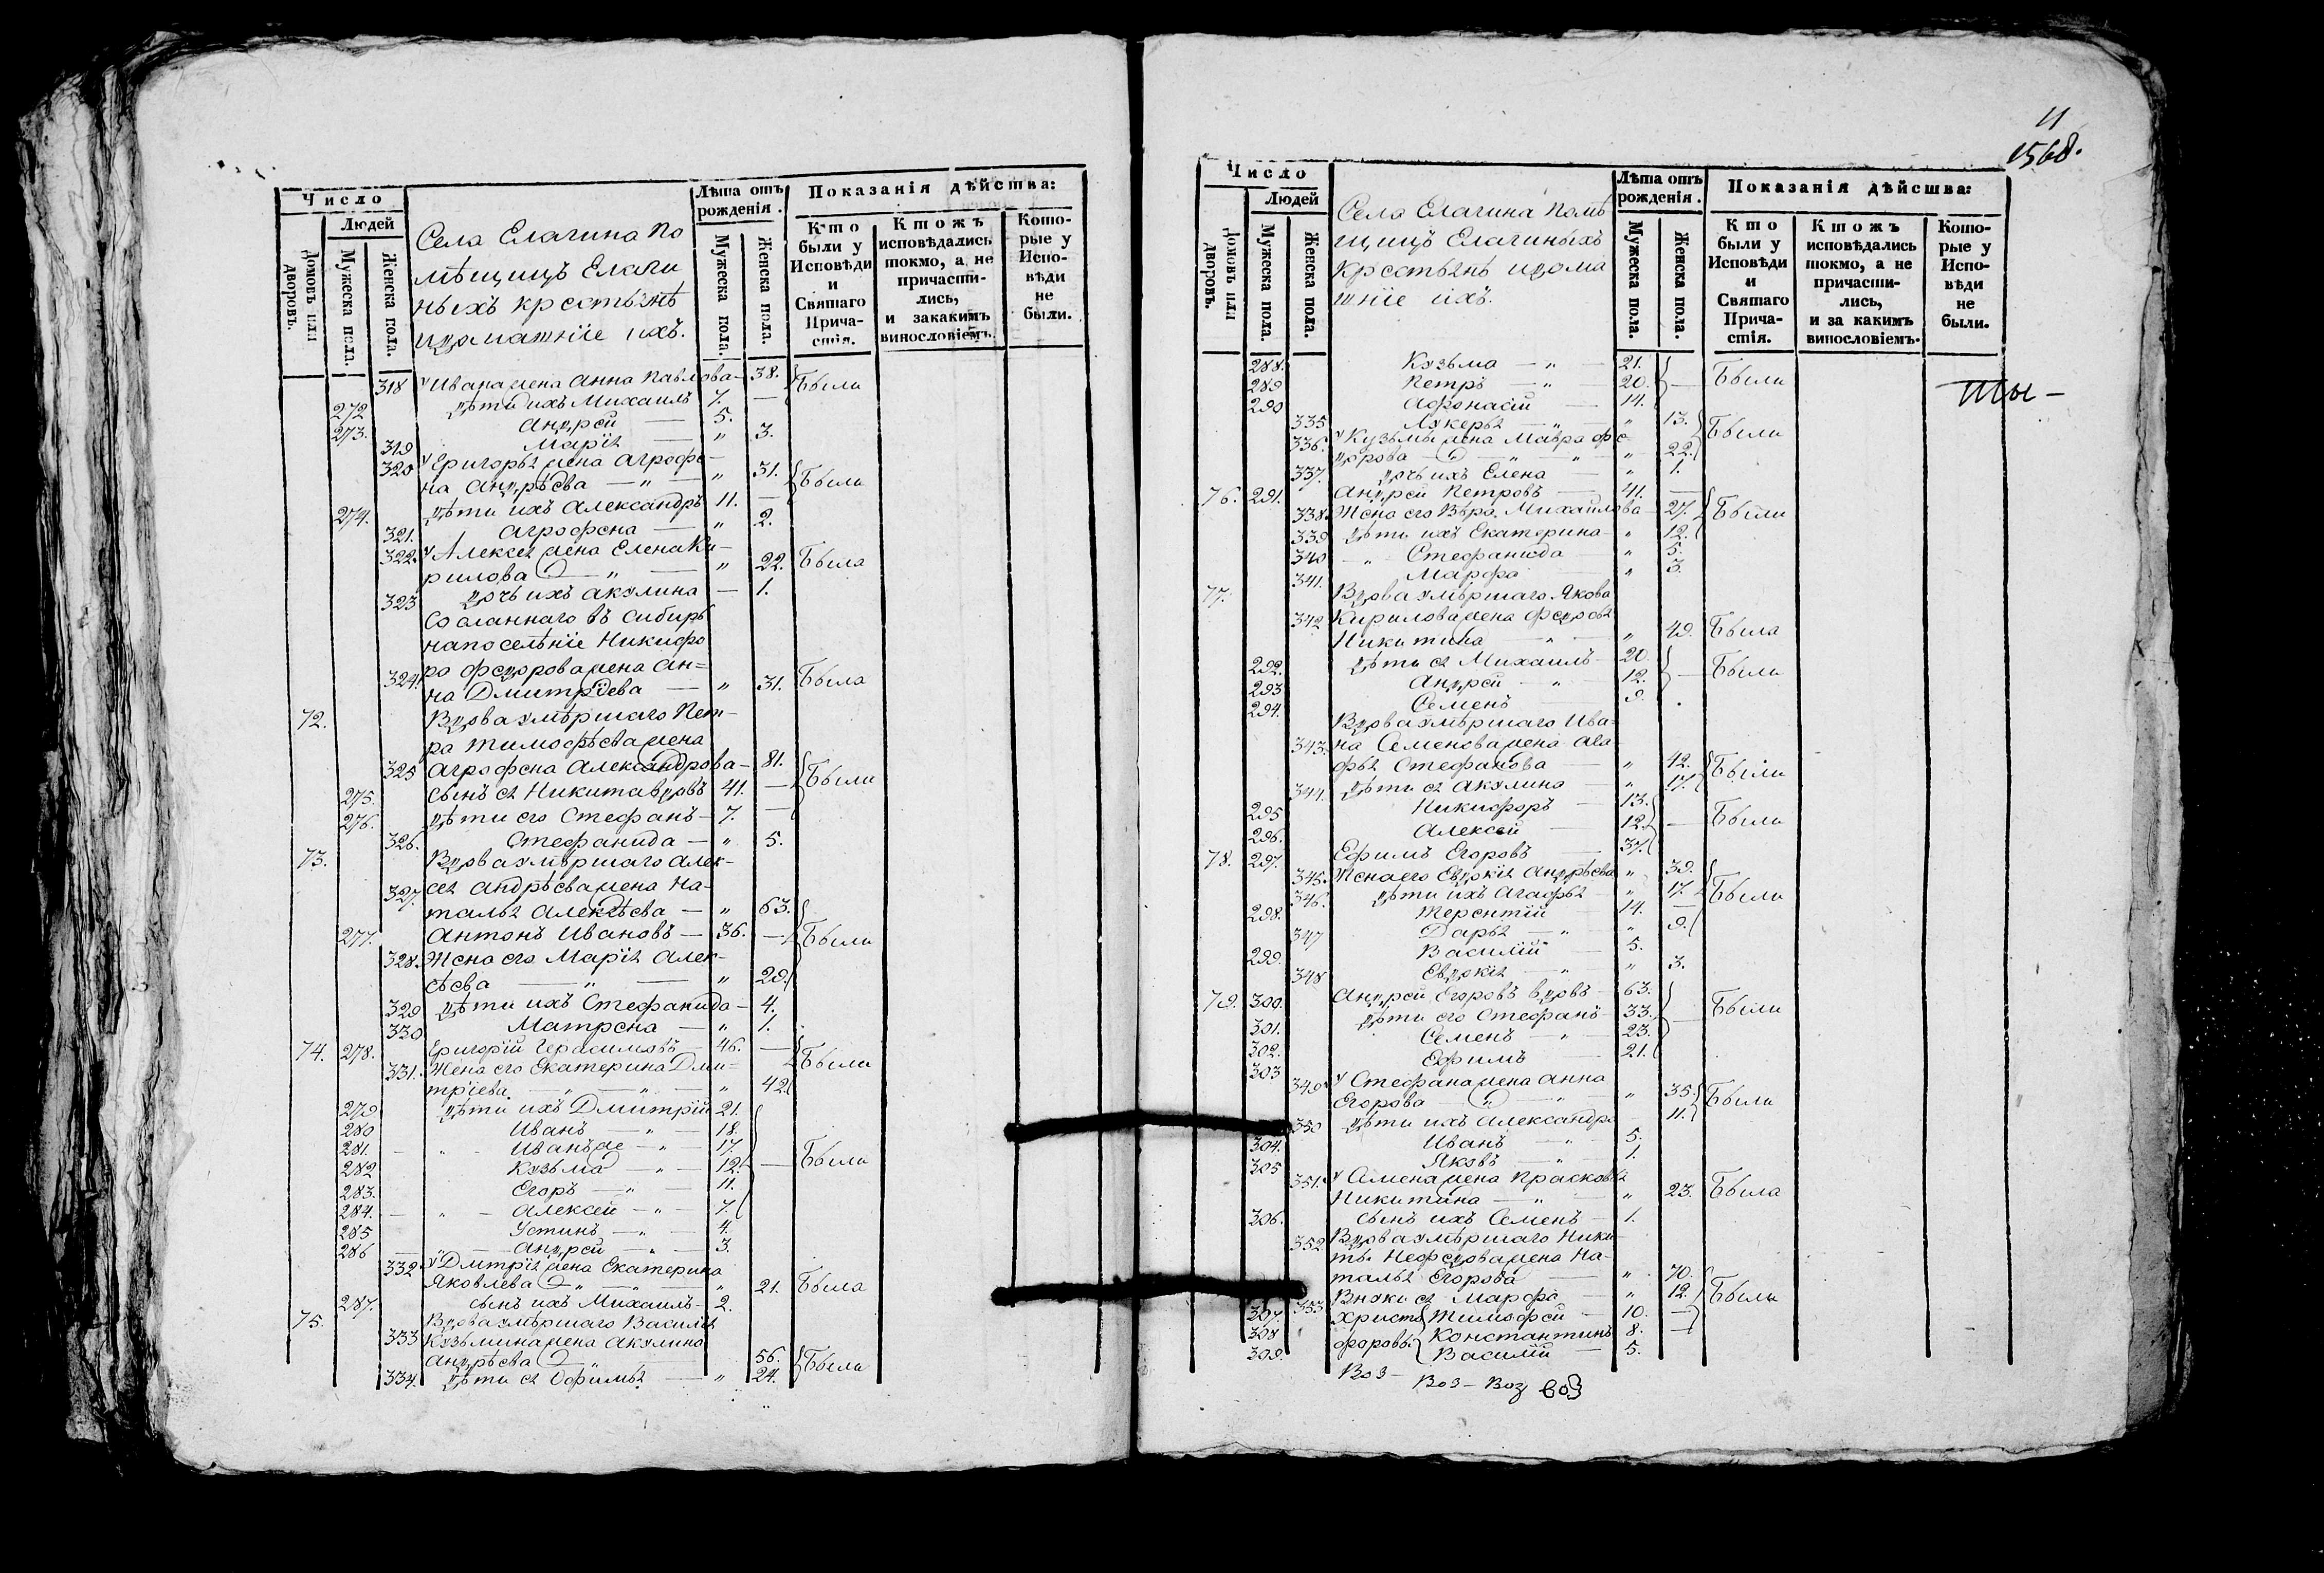 Число
Людей
Домовъ или дворовъ.
Мужеска пола.
Женска пола.
Села Елагина по
мѣщицъ Елаги
ныхъ крестьянъ
идоматнїе ихъ.
Лѣта отъ рожденія.
Мужеска пола.
Женска пола.
Показанія дѣйства:
Кто были у Исповѣди и Святаго Прича-стія.
Ктожъ исповѣдались токмо, а не причасти-лись, и закакимъ винословіемъ.
Кото-рые у Испо-вѣди не были.
318 у Ивана жена Анна Павлова — 38. Были
272 дѣти ихъ Михаилъ 7. —
273. Андрей — 5.
319 Марїя — „ 3.
320 у Григорья жена Агрофе-
на Андрѣева — „ — „ 31. Были
274. дѣти ихъ Александръ 11. —
321. Агрофена — „ 2.
322. у Алексея жена Елена Ки-
рилова — „ — „ 22. Была
323 дочь ихъ Акулина — 1.
Сосланнаго въ Сибирь
напоселѣнїе Никифо
324. ро Федорова жена Ан=
на Дмитрїева — „ 31. Была
72. Вдова умѣршаго Пет-
ра Тимофѣева жена
325 Агрофена Александрова — 81. Были
275. сынъ ея Никита вдовъ 41. —
276. дѣти его Стефанъ — 7. —
326. Стефанида — „ 5.
73. Вдова умѣршаго Алек-
327. сея Андрѣева жена На-
талья Алексѣева — „ 63.
277. Антонъ Ивановъ — 36. — Были
328. Жена его Марїя Алек-
сѣева — „ — „ 29.
329 дѣти ихъ Стефанида — 4.
330 Матрена — „ 1.
74. 278. Григорїй Герасимовъ — 46. — Были
331. Жена его Екатерина Дми-
трїева — „ — „ — „ 42.
279 дѣти ихъ Дмитрїй 21.
280 Иванъ — „ — 18.
281. Иванъ же — „ — 17.
282 Кузьма — „ — 12. — Были
283. Егоръ — „ — 11.
284. Алексей — „ — 7.
285 Устинъ — „ — 4.
286 Андрей — „ — 3.
332 у Дмитрїя жена Екатерина
Яковлева — „ — „ 21. Была
287. сынъ ихъ Михаилъ — 2.
75. Вдова умѣршаго Василїя
333 Кузьмина жена Акулина
Андрѣева — „ — 56. Были
334. дѣти ея Офимья — „ 24.
11
1568.
Число
Людей
Домовъ или дворовъ.
Мужеска пола.
Женска пола.
Села Елагина помѣ
щицъ Елагиныхъ
крестьянъ идома
шнїе ихъ.
Лѣта отъ рожденія.
Мужеска пола.
Женска пола.
Показанія дѣйсшва:
Кто были у Исповѣди и Святаго Прича-стія.
Кто жъ исповѣдались токмо, а не причасти-лись, и за какимъ винословіемъ.
Кото-рые у Испо-вѣди не были.
288. Кузьма — „ — 21.
289 Петръ — „ — 20. — Были
290 Афонасїй — 14.
ты —
335 Лукерья — „ — „ 13. Были
336. у Кузьмы жена Мавра Фе-
дорова — „ — „ 22.
337. дочь ихъ Елена — „ 1.
76. 291. Андрей Петровъ — 41. —
338. Жена его Вѣра Михайлова — 27. Были
339 дѣти ихъ Екатерина — „ 12.
340 — „ Стефанида — „ 5.
341. Марфа — „ 3.
77. Вдова умѣршаго Якова
342 Кирилова жена Федосья
Никитина — „ — „ 49. Была
292. дѣти ея Михаилъ — 20.
293 Андрей — „ — 12. — Были
294. Семенъ — 9.
Вдова умѣршаго Ива=
343. на Семенова жена Ага
фья Стефанова — „ 42. Были
344. дѣти ея Акулина — „ 17.
295 Никифоръ — 13.
296. Алексей — 12. — Были
78. 297. Ефимъ Егоровъ — 37.
345. Жена его Евдокїя Андрѣева „ 39.
346. дѣти ихъ Агафья — „ 17. Были
298. Терентїй — 14. —
347 Дарья — „ — „ 9.
299. Василїй — 5.
348 Евдокїя — „ — „ 3.
79. 300. Андрей Егоровъ вдовъ — 63.
301. дѣти его Стефанъ — 33. — Были
302. Семенъ — „ — 23.
303 Ефимъ — 21.
349 у Стефана жена Анна
Егорова — „ — „ — „ 35. Были
350 дѣти ихъ Александра 11.
304. Иванъ — „ 5.
305 Яковъ — „ 1.
351. у Семена жена Прасковья
Никитина — „ — „ 23. Была
306. сынъ ихъ Семенъ — 1.
352 Вдова умѣршаго Ники-
ты Нефедова жена На-
талья Егорова — „ 70.
353 Внуки ея Марфа — „ 12. Были
307. Христо Тимофей — 10. —
308 форовы Константинъ 8. —
309. Василїй — 5.
Воз- Воз- Воз воз